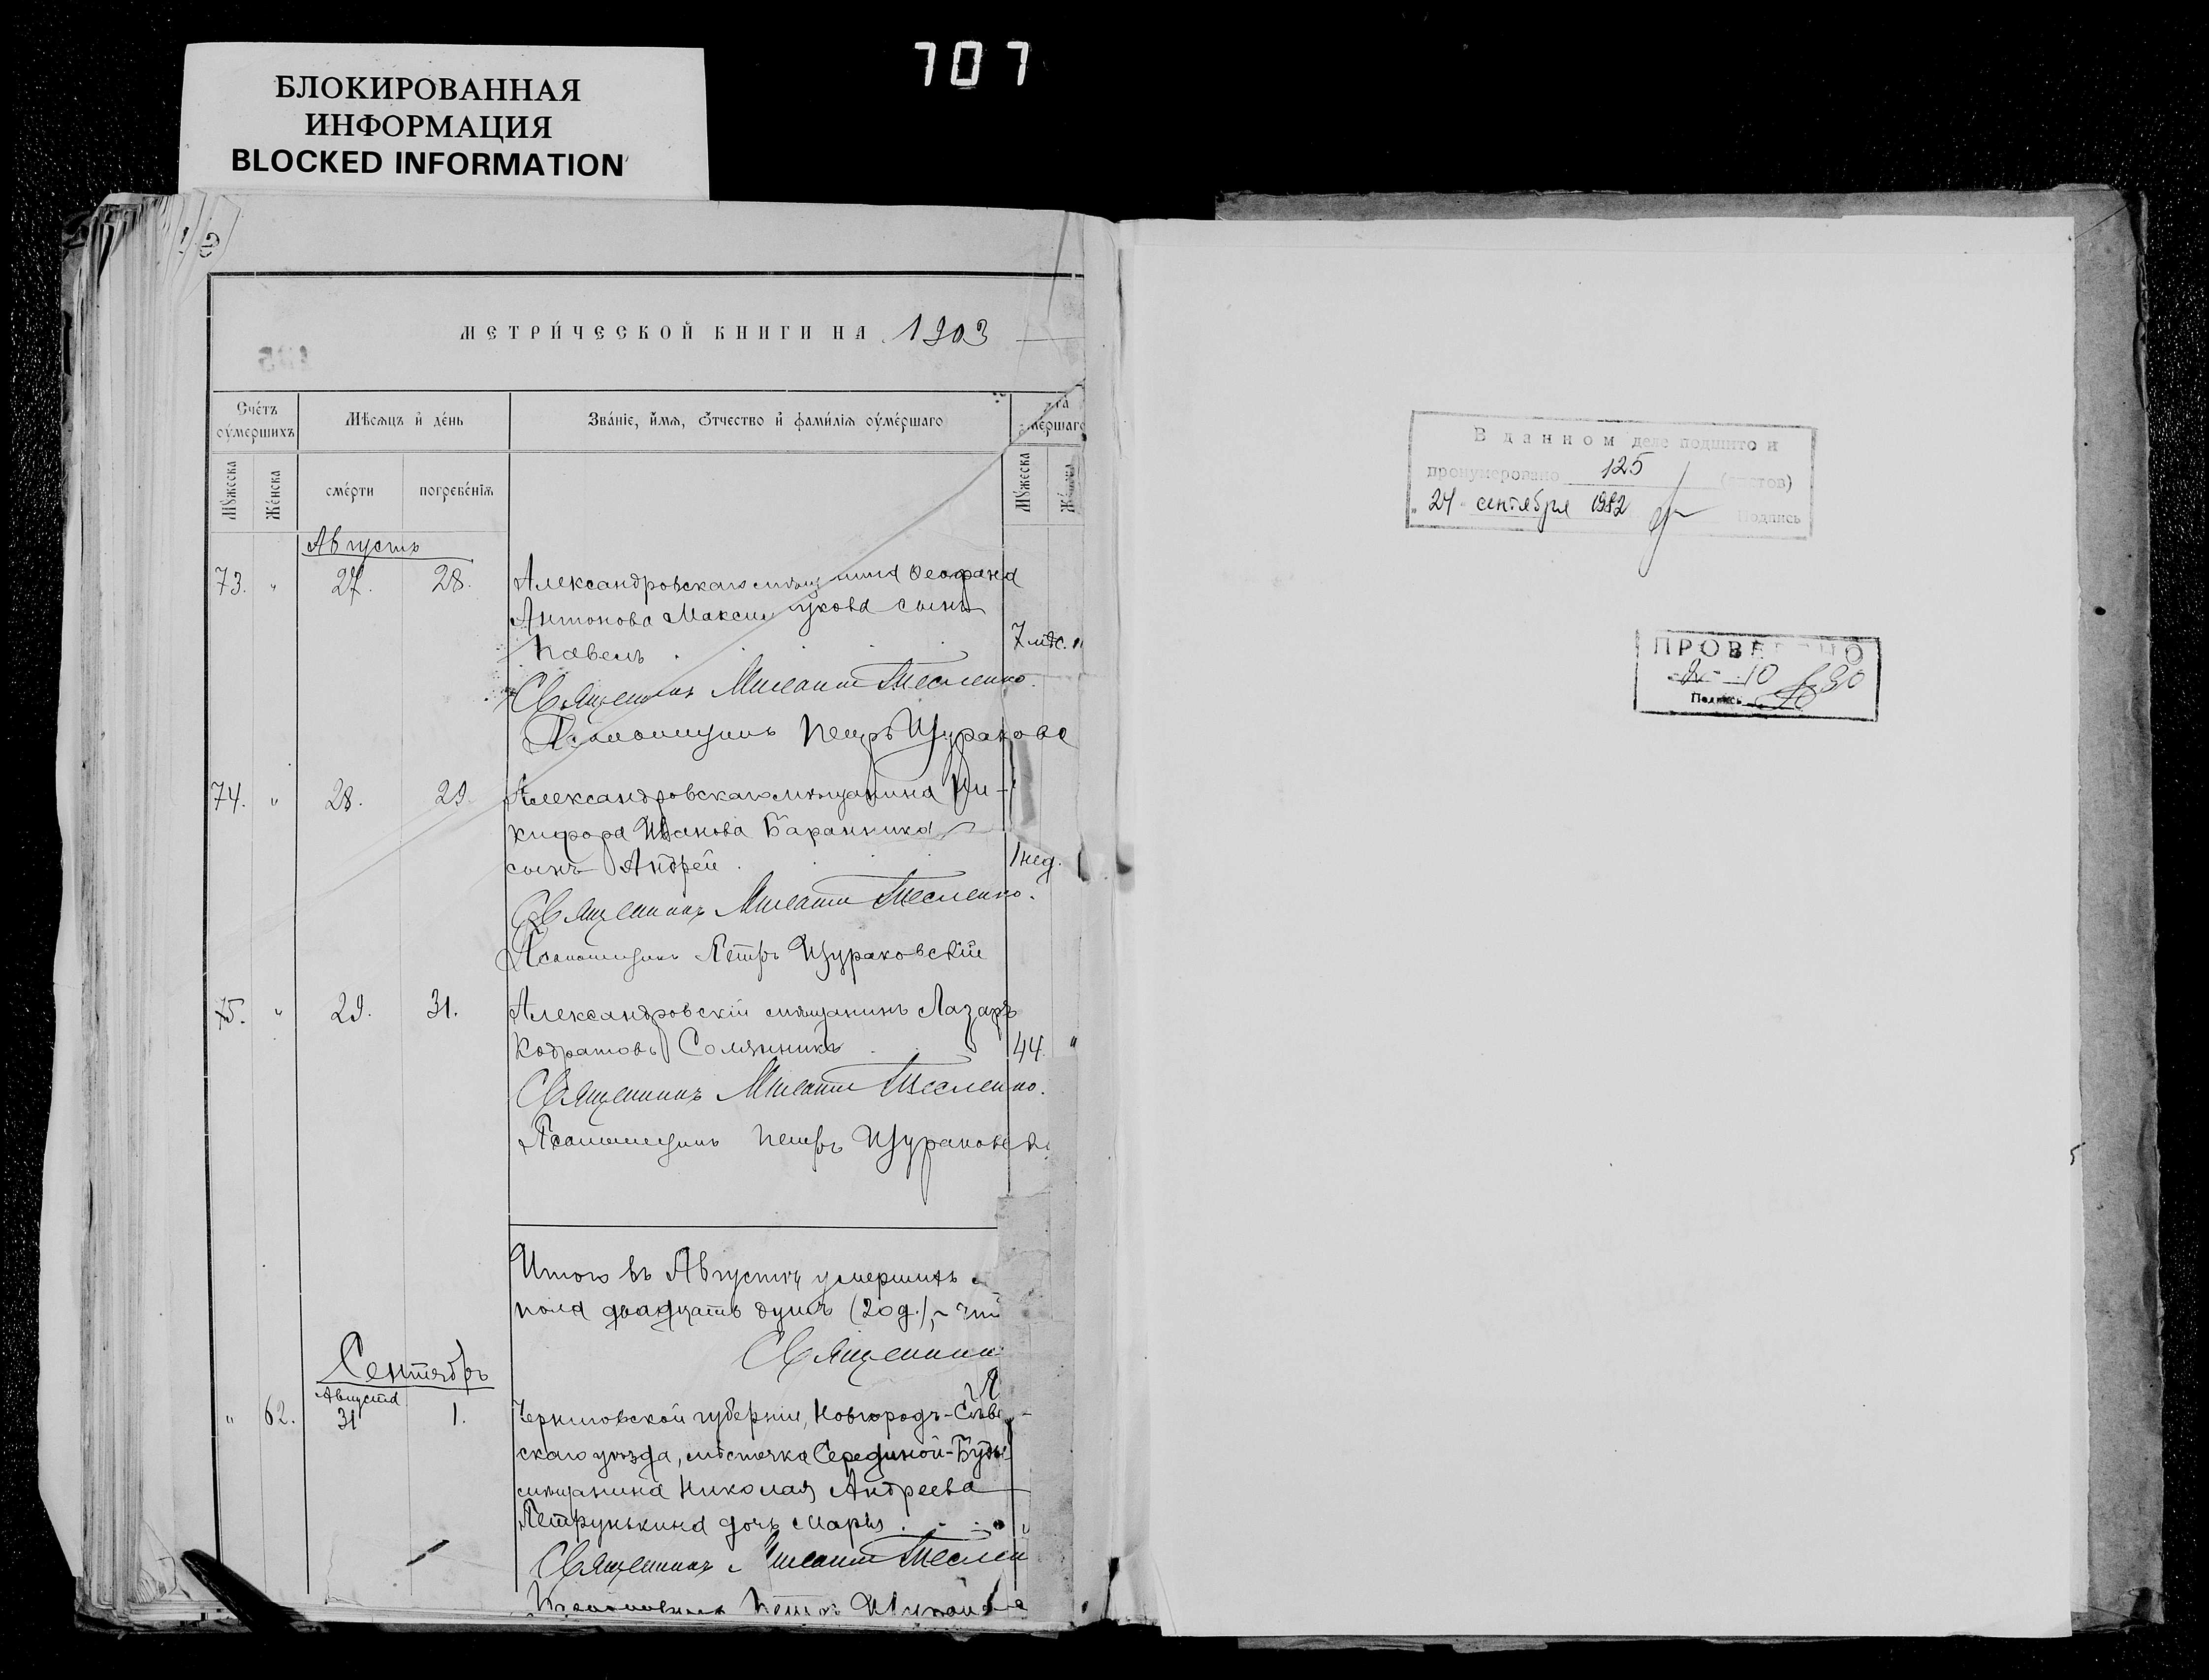 707
БЛОКИРОВАННАЯ
ИНФОРМАЦИЯ
BLOCKED INFORMATION
МЕТРИ́ЧЕСКОЙ КНИГИ НА 1903
Сче́тъ оу҆ме́ршихъ
Мѣ́сяцъ и҆ де́нь
Зва́нїе, и҆́мѧ, ѻ҆́тчество и҆ фами́лїѧ оу҆ме́ршагѡ
Мꙋ́жеска
Же́нска
сме́рти
погребе́нїѧ
Мꙋ́жеска
Августъ
73. " 27. 28. Александровскаго Феофана
Антонова сынъ
Павелъ 7 мѣс.
Священникъ Тесленко.
Псаломщикъ Петръ Щураковс
74. " 28. 29. Александровскаго мѣщанина Ни-
кифора Иванова Баранника
сынъ Андрей 1 нед.
Священникъ Тесленко.
Псаломщикъ Петръ Щураковскій
75. " 29. 31. Александровскій мѣщанинъ Лазарь
Кодратовъ Соляникъ 44 "
Священникъ Тесленко.
Псаломщикъ Петръ Щураковск
Итого въ Августѣ умершихъ
пола двадцать душъ (20 д.),
Священник
Сентябрь
Августа
" 62. 31 1. Черниговской губерніи, Новгородъ-Сѣве
скаго уѣзда, мѣстечка Середикой-Буды
мѣщанина Николая Андреева
Петрунькина дочь Марія
Священникъ Теслен
Псаломщикъ Петръ
В данном деле подшито и
пронумеровано 125 (листов)
" 24 " сентября 1982
Подпись
ПРОВЕРЕНО
Подпись